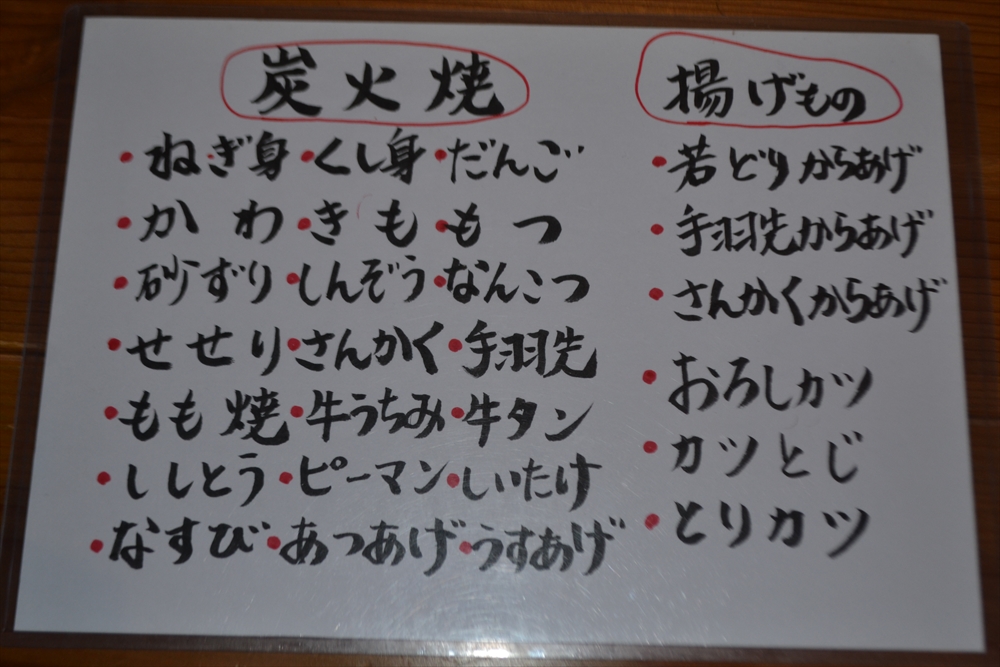 炭火焼
・ねぎ身・くし身・だんご
・かわ・きも・もつ
・砂ずり・しんぞう・なんこつ
・せせり・さんかく・手羽先
・もも焼・牛うちみ・牛タン
・ししとう・ピーマン・しいたけ
・なすび・あつあげ・うすあげ
揚げもの
・若どりからあげ
・手羽先からあげ
・さんかくからあげ
・おろしカツ
・カツとじ
・とりカツ